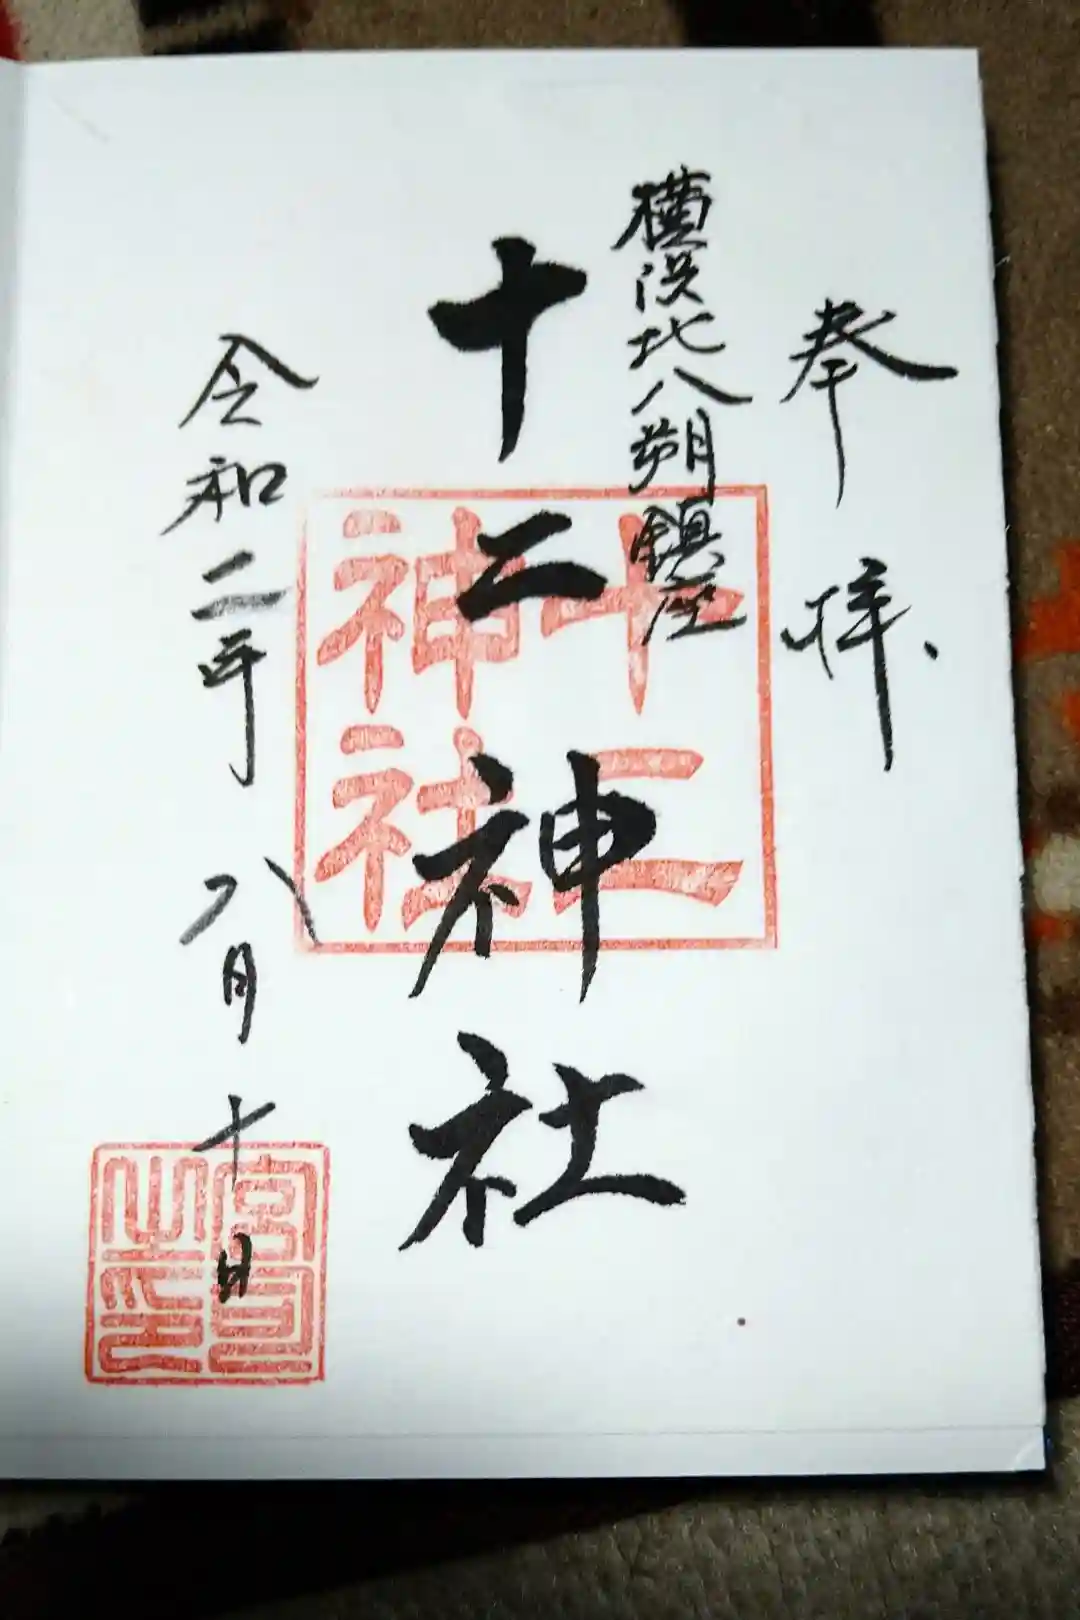 奉拝
横浜北八朔鎮座
十二神社
十二神社
令和二年八月十日
宮司之印